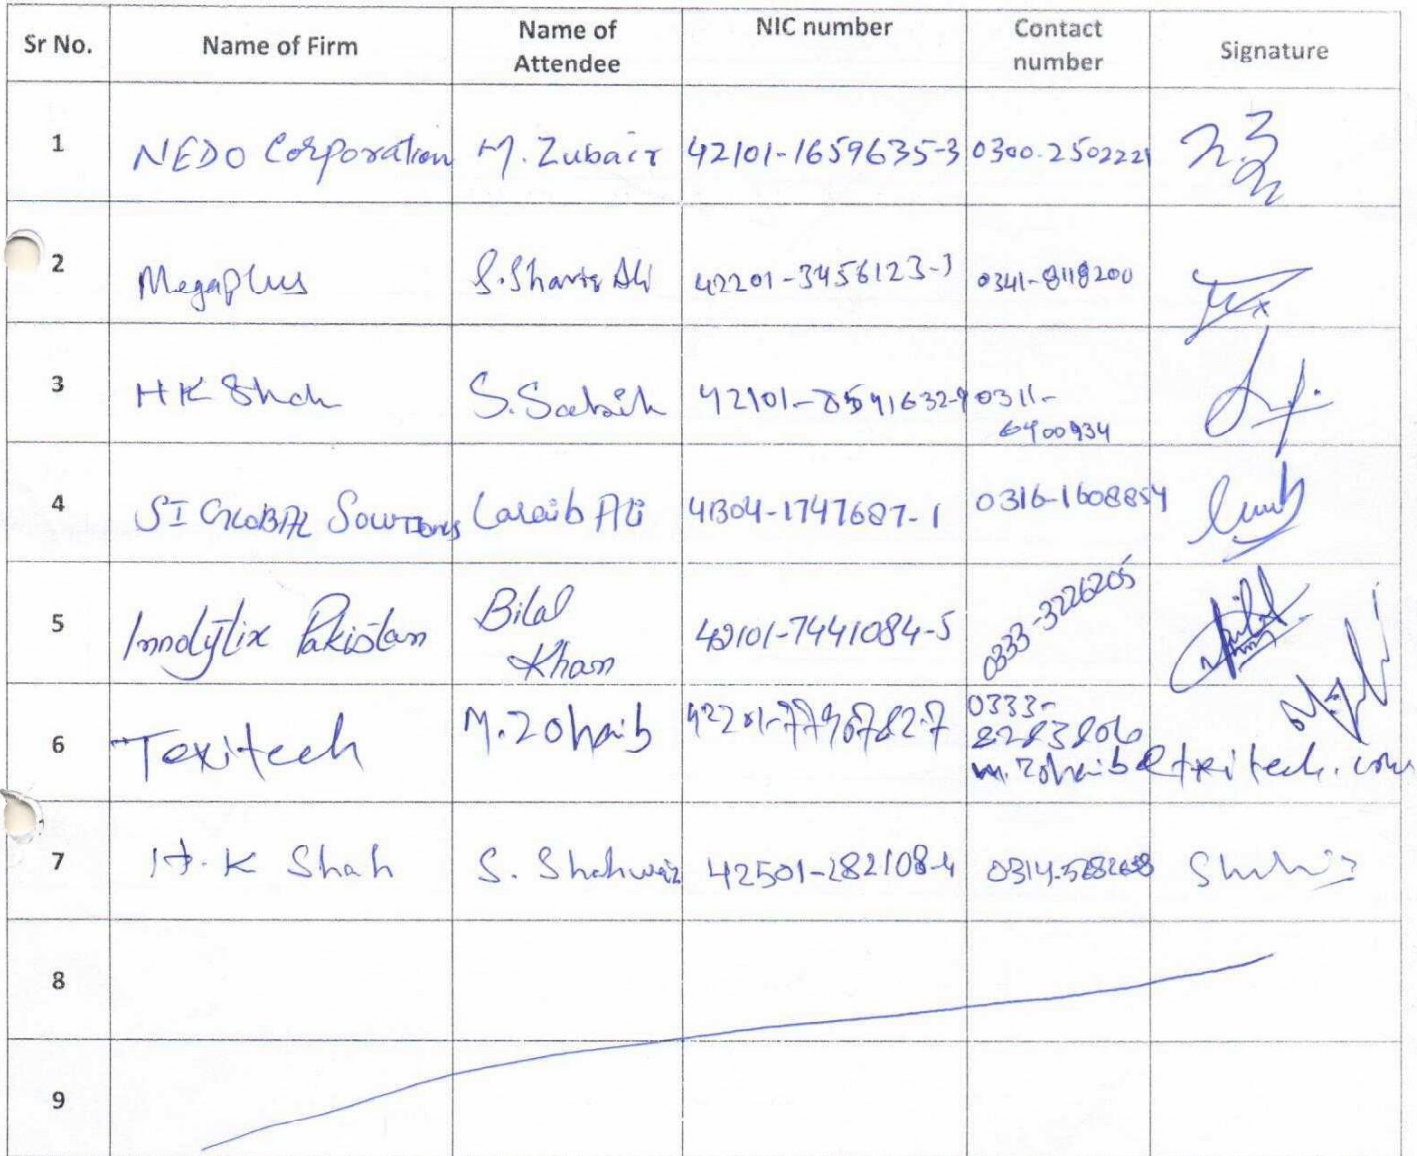 Sr No. Name of Firm Name of Attendee NIC number Contact number Signature
1 NEDO Corporation M. Zubair 42101-1659635-3 0300-2502221
2 Megaplus S. Sharis Ali 42201-3456123-3 0341-8118200
3 HK Shah S. Sabih 0311-6400934
4 SI GLOBAL SOLUTIONS Laraib Ali 41304-1747687-1 0316-1608854
5 Innolytix Pakistan Bilal Khan 42101-7441084-5 0333-3226205
6 Texitech M. Zohaib 0333-
m.zohaib@texitech.com
7 H.K Shah S. Shahwaiz 42501-282108-4
8
9